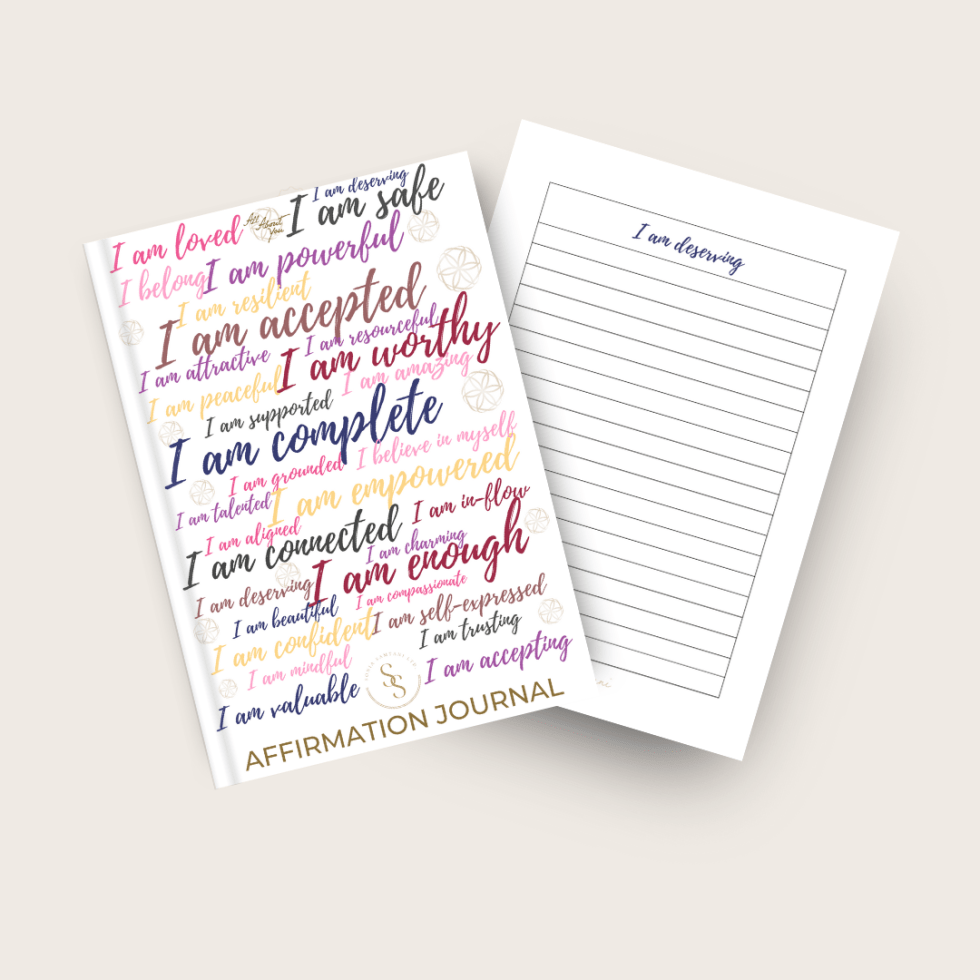 I am deserving
I am safe
I am loved
All About You
I belong
I am powerful
I am resilient
I am accepted
I am resourceful
I am attractive
I am worthy
I am peaceful
I am amazing
I am supported
I am complete
I believe in myself
I am grounded
I am empowered
I am talented
I am in-flow
I am aligned
I am connected
I am charming
I am enough
I am deserving
I am compassionate
I am beautiful
I am self-expressed
I am confident
I am trusting
I am mindful
I am accepting
I am valuable
SS
AFFIRMATION JOURNAL
I am deserving